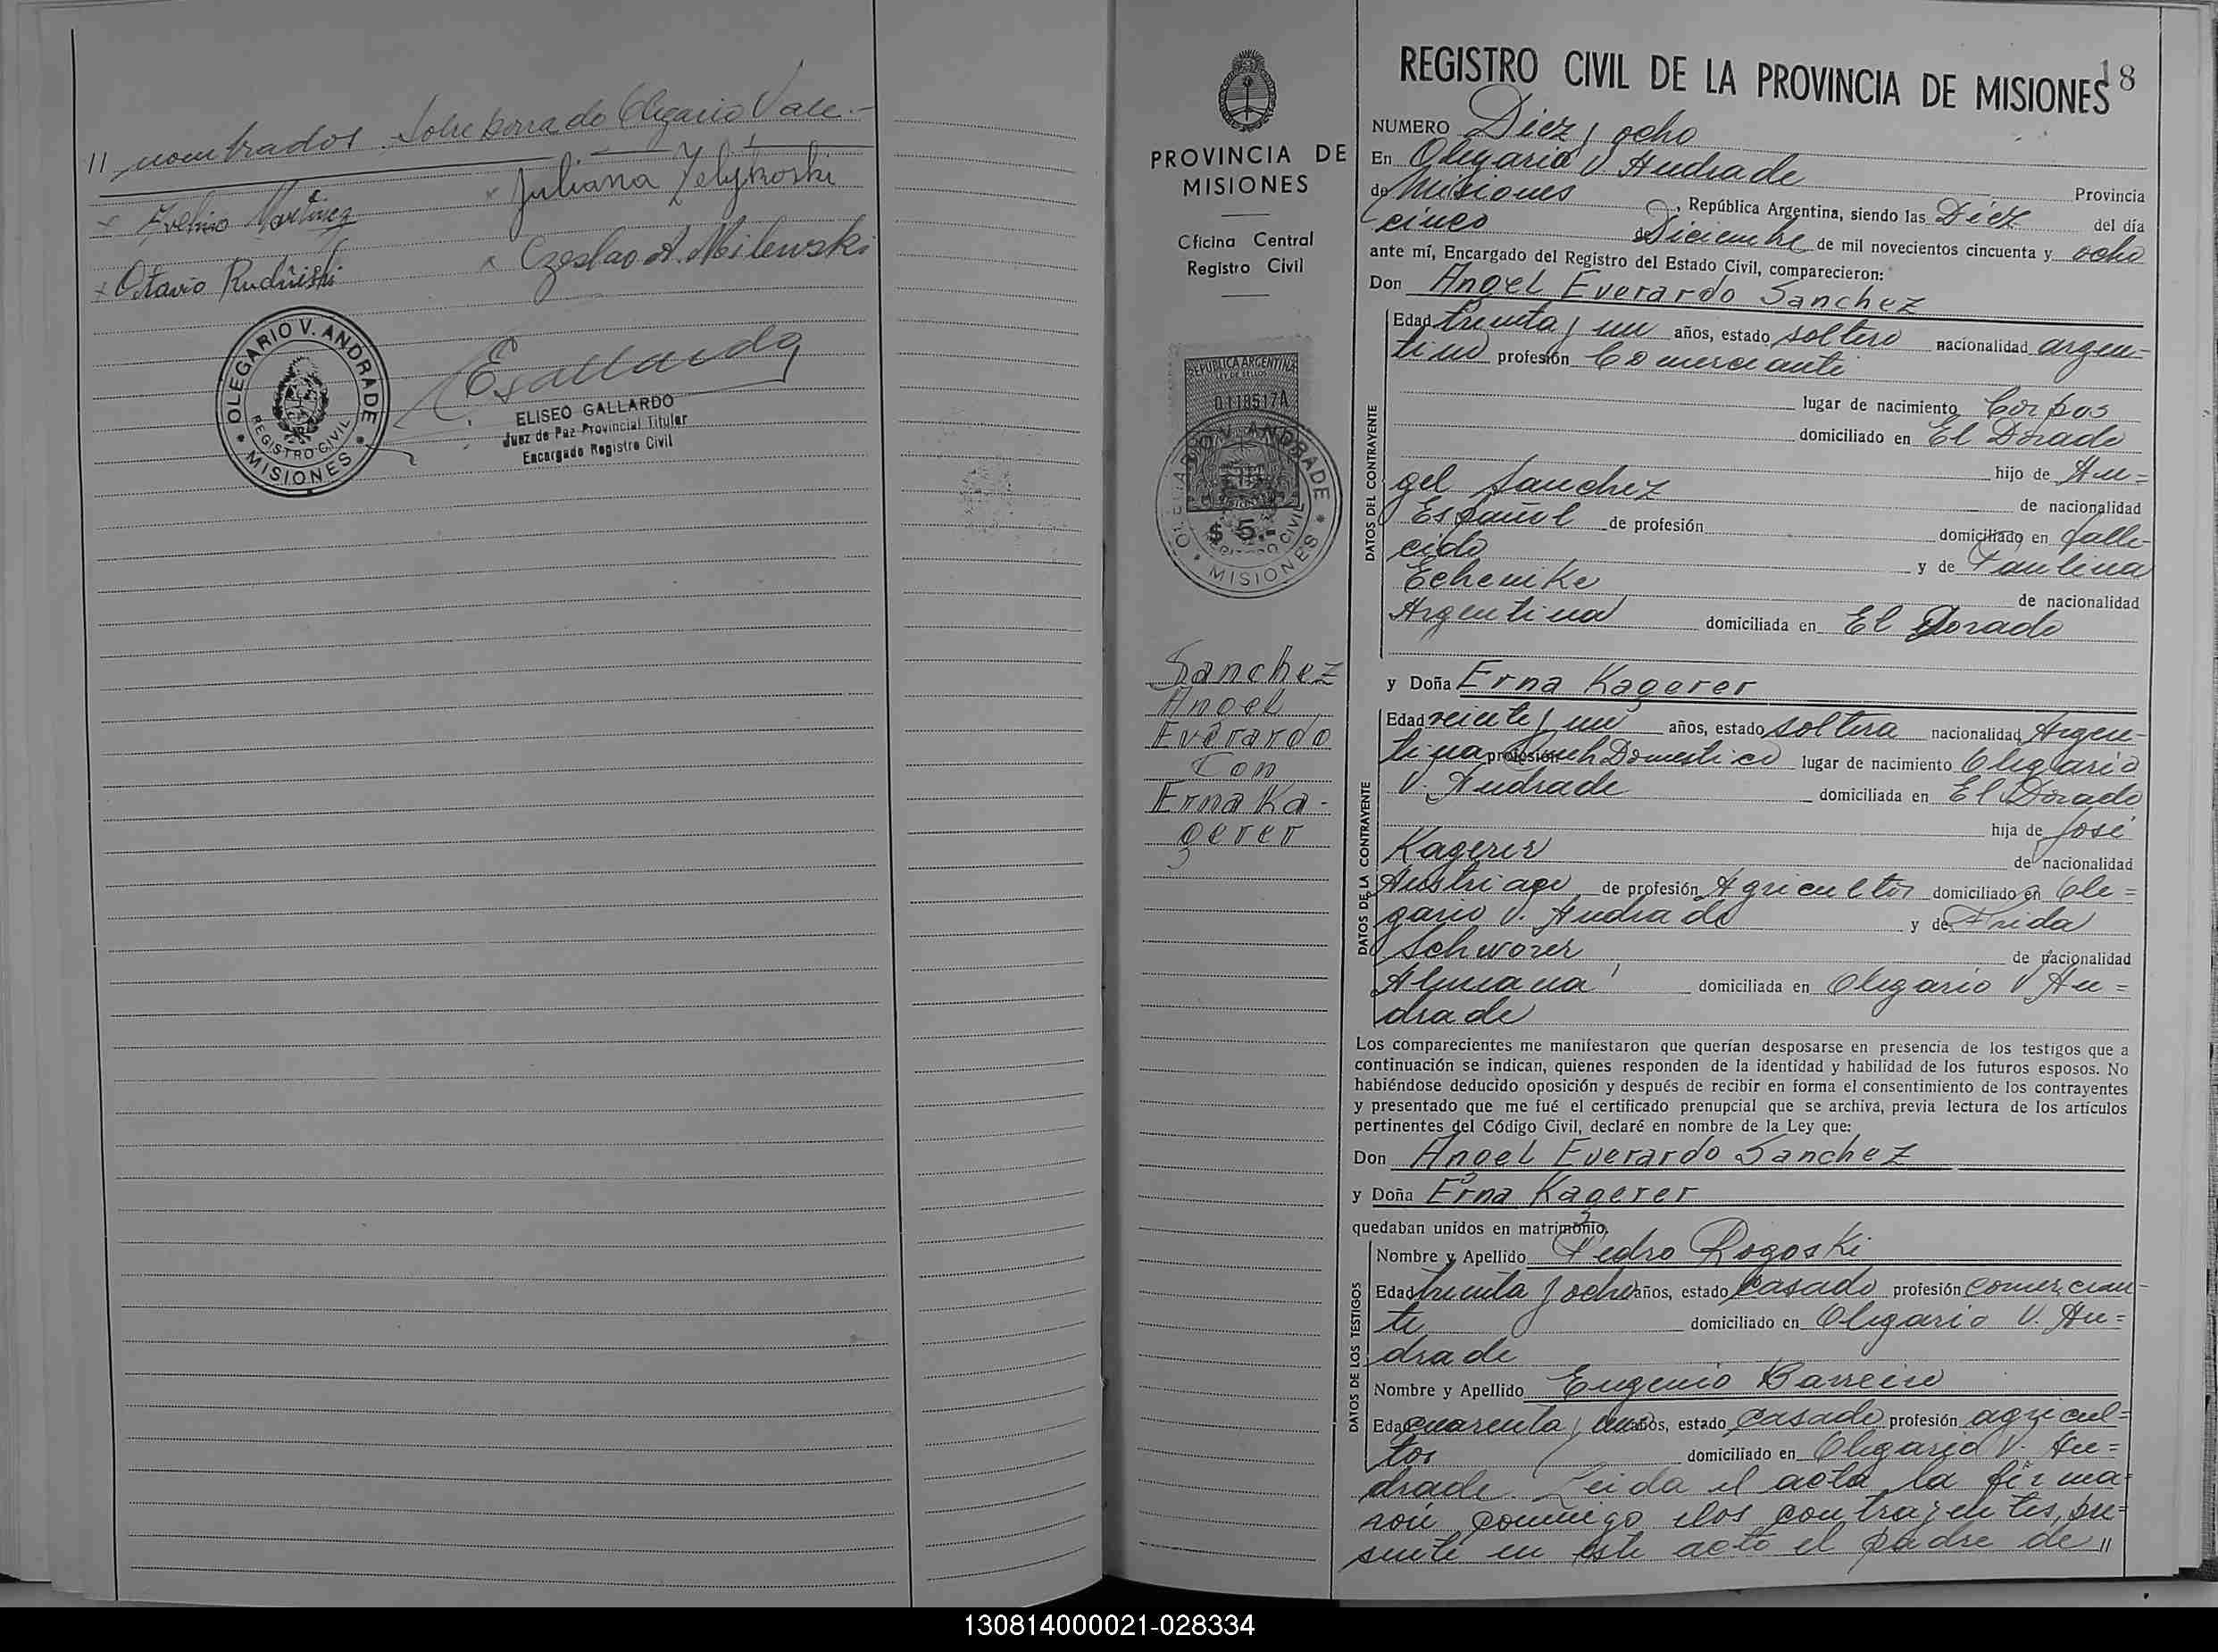 " nombrados. Sobre borrado Olegario Vale.-
x Juliana Zelykoski
x Avelino Martinez
x Czeslao A. Milewski
x Otavio
OLEGARIO V. ANDRADE
REGISTRO CIVIL
* MISIONES *
EGallardo
ELISEO GALLARDO
Juez de Paz Provincial Titular
Encargado Registro Civil
PROVINCIA DE
MISIONES
Oficina Central
Registro Civil
REPUBLICA ARGENTINA
LEY DE SELLOS
0118517A
$ 5.-
OLEGARIO V. ANDRADE
REGISTRO CIVIL
* MISIONES *
Sanchez
Angel
Everardo
Con
Erna Ka-
gerer
18
REGISTRO CIVIL DE LA PROVINCIA DE MISIONES
NUMERO Diez y ocho
En Olegario V Andrade Provincia
de Misiones, República Argentina, siendo las Diez del día
cinco de Diciembre de mil novecientos cincuenta y ocho
ante mí, Encargado del Registro del Estado Civil, comparecieron:
Don Angel Everardo Sanchez
DATOS DEL CONTRAYENTE
Edad treinta y un años, estado soltero nacionalidad argen=
tino profesión Comerciante
lugar de nacimiento Corpus
domiciliado en El Dorado
hijo de An=
gel Sanchez de nacionalidad
Español de profesión domiciliado en falle-
cido y de Paulina
Echenike de nacionalidad
Argentina domiciliada en El Dorado
y Doña Erna Kagerer
DATOS DE LA CONTRAYENTE
Edad veinte y un años, estado soltera nacionalidad Argen-
tina profesión Domestico lugar de nacimiento Olegario
V. Andrade domiciliada en El Dorado
hija de José
Kagerer de nacionalidad
Austriaco de profesión Agricultor domiciliado en Ole=
gario V. Andrade y de Frida
Schworer de nacionalidad
Alemana domiciliada en Olegario V An=
drade
Los comparecientes me manifestaron que querían desposarse en presencia de los testigos que a
continuación se indican, quienes responden de la identidad y habilidad de los futuros esposos. No
habiéndose deducido oposición y después de recibir en forma el consentimiento de los contrayentes
y presentado que me fué el certificado prenupcial que se archiva, previa lectura de los artículos
pertinentes del Código Civil, declaré en nombre de la Ley que:
Don Angel Everardo Sanchez
y Doña Erna Kagerer
quedaban unidos en matrimonio.
DATOS DE LOS TESTIGOS
Nombre y Apellido Pedro Rogoski
Edad treinta y ocho años, estado Casado profesión comercian-
te domiciliado en Olegario V. An=
drade
Nombre y Apellido Eugenio Barreiro
Edad cuarenta y un años, estado Casado profesión agricul=
tor domiciliado en Olegario V. An=
drade. Leida el acta la firma=
ron conmigo los contrayentes, pre=
sente en este acto el padre de "
130814000021-028334